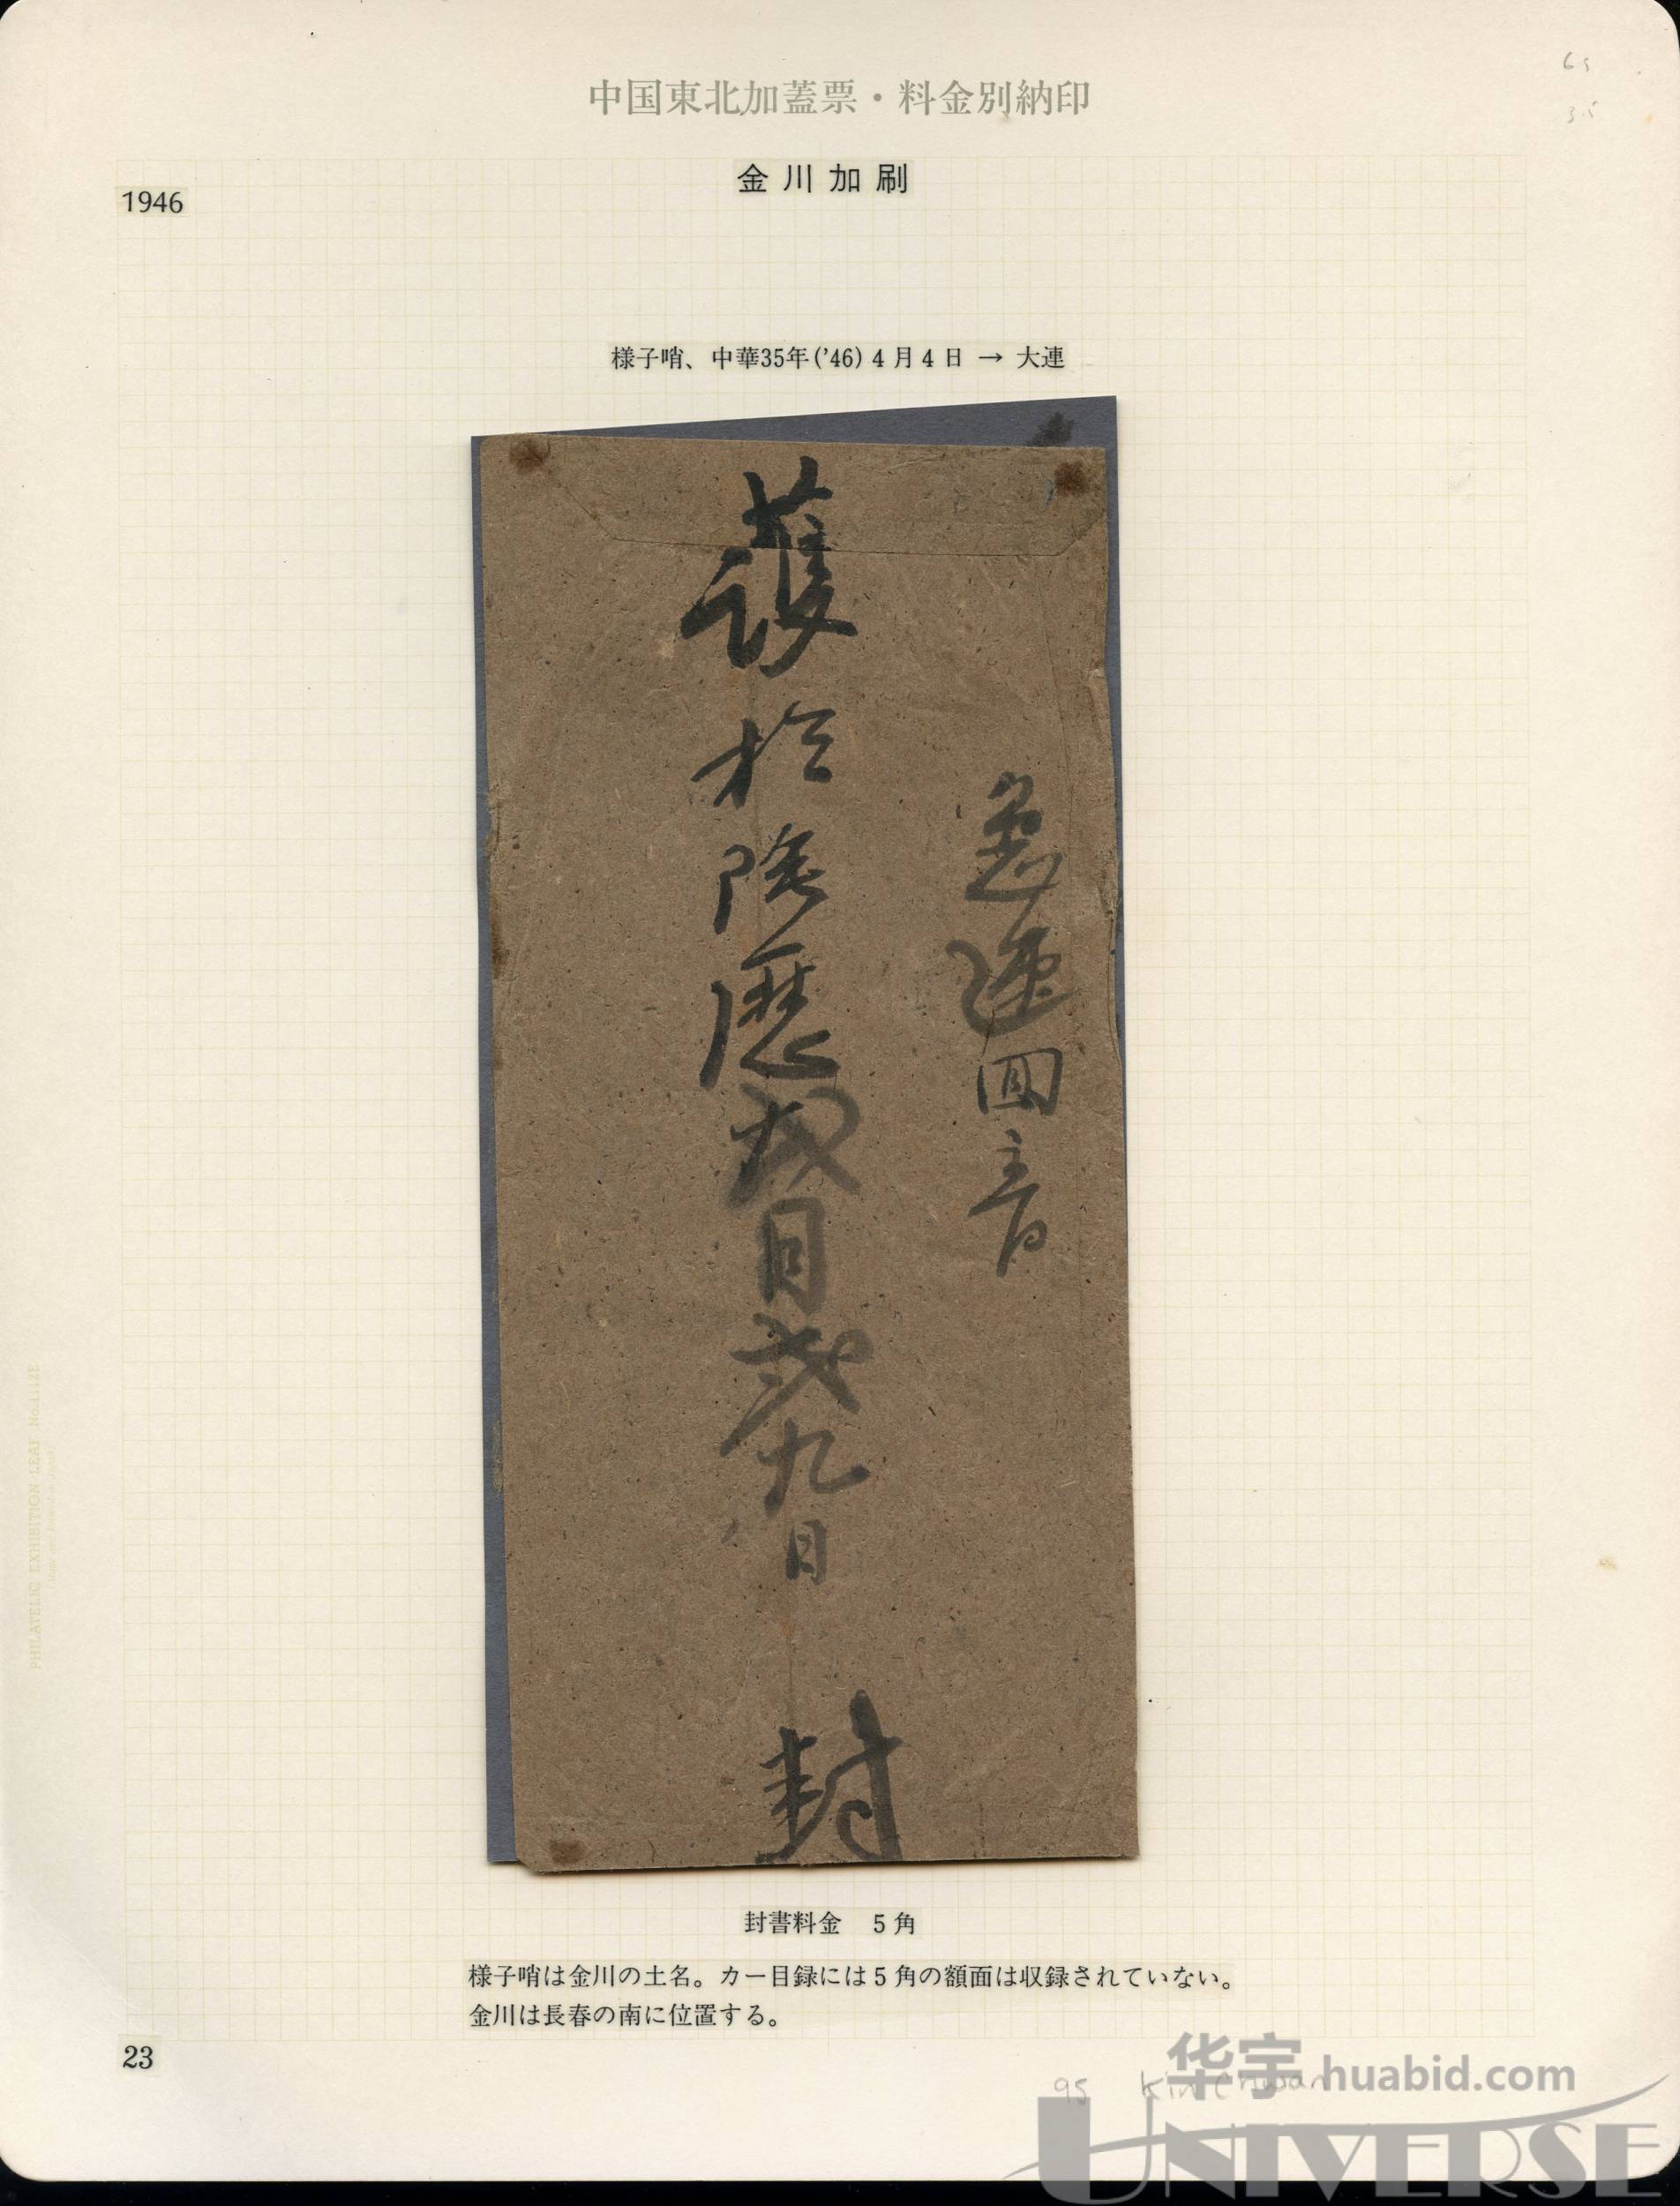 中国東北加蓋票・料金別納印
金川加刷
1946
様子哨、中華35年('46)4月4日 → 大連
急速回音
護於陰歴弍月弍九日
封
封書料金 5角
様子哨は金川の土名。カー目録には5角の額面は収録されていない。
金川は長春の南に位置する。
23
95 Kin Chwan
华宇 huabid.com
UNIVERSE
PHILATELIC EXHIBITION LEAF